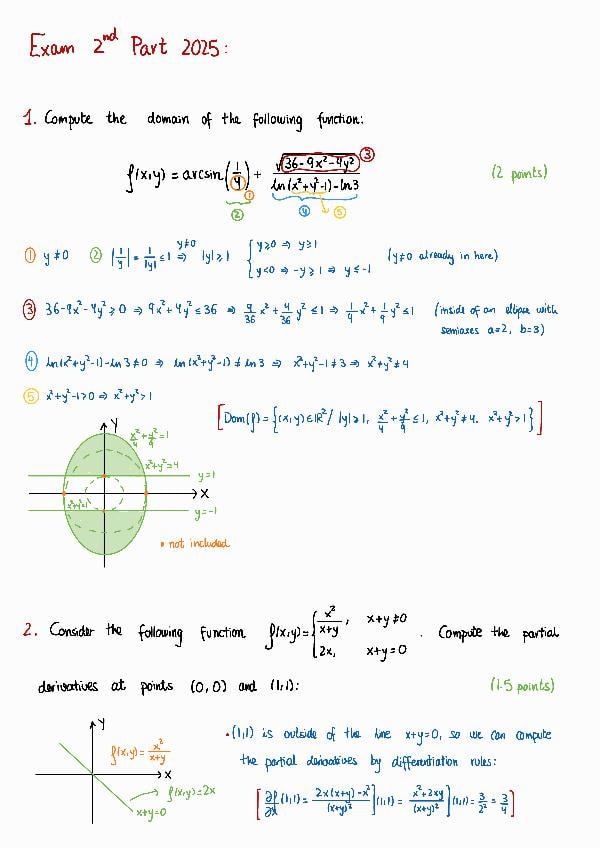 Exam 2nd Part 2025:
1. Compute the domain of the following function:
f(x,y) = arcsin(1/y) + √(36-9x²-4y²) / (ln(x²+y²-1)-ln3) (2 points)
① ② ③ ④ ⑤
① y≠0 ② |1/y| = 1/|y| ≤ 1 ⇒ (y≠0) |y| ≥ 1 { y≥0 ⇒ y≥1 (y≠0 already in here)
y<0 ⇒ -y≥1 ⇒ y≤-1
③ 36-9x²-4y² ≥ 0 ⇒ 9x²+4y² ≤ 36 ⇒ 9/36 x² + 4/36 y² ≤ 1 ⇒ 1/4 x² + 1/9 y² ≤ 1 (inside of an ellipse with
semiaxes a=2, b=3)
④ ln(x²+y²-1)-ln3 ≠ 0 ⇒ ln(x²+y²-1) ≠ ln3 ⇒ x²+y²-1 ≠ 3 ⇒ x²+y² ≠ 4
⑤ x²+y²-1>0 ⇒ x²+y²>1
[Dom(f) = {(x,y)∈ℝ² / |y|≥1, x²/4 + y²/9 ≤ 1, x²+y²≠4, x²+y²>1}]
y
x²/4 + y²/9 = 1
x²+y²=4
y=1
x
x²+y²=1
y=-1
• not included
2. Consider the following function f(x,y) = { x²/(x+y), x+y≠0
2x, x+y=0 . Compute the partial
derivatives at points (0,0) and (1,1): (1.5 points)
y
f(x,y) = x²/(x+y)
x
f(x,y)=2x
x+y=0
• (1,1) is outside of the line x+y=0, so we can compute
the partial derivatives by differentiation rules:
[∂f/∂x (1,1) = (2x(x+y)-x²)/(x+y)² ](1,1) = (x²+2xy)/(x+y)² ](1,1) = 3/2² = 3/4]